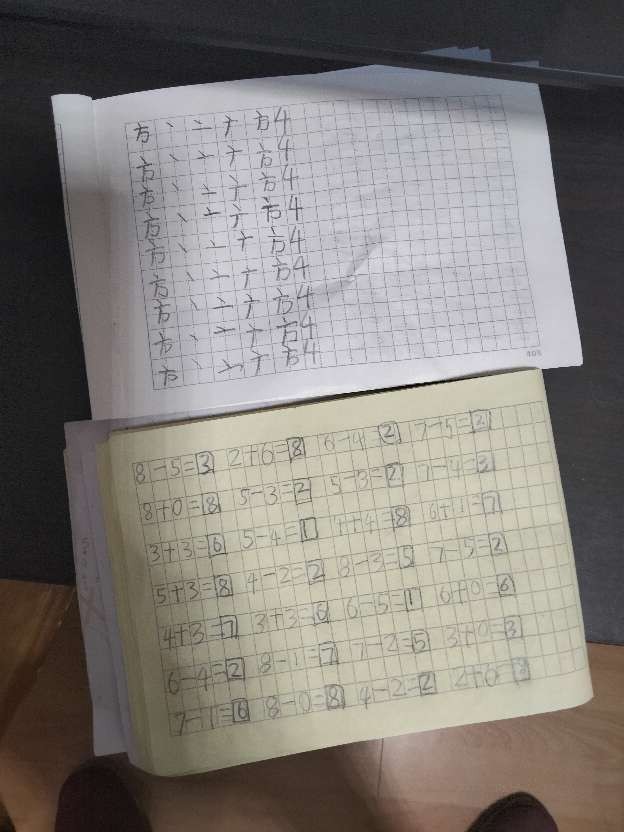 方 丶 亠 亍 方 4
方 丶 亠 亍 方 4
方 丶 亠 亍 方 4
方 丶 亠 亍 方 4
方 丶 亠 亍 方 4
方 丶 亠 亍 方 4
方 丶 亠 亍 方 4
方 丶 亠 亍 方 4
方 丶 亠 亍 方 4
8-5=3 2+6=8 6-4=2 7-5=2
8+0=8 5-3=2 5-3=2 7-4=3
3+3=6 5-4=1 4+4=8 6+1=7
5+3=8 4-2=2 8-3=5 7-5=2
4+3=7 3+3=6 6-5=1 6+0=6
6-4=2 8-1=7 7-2=5 3+0=3
7-1=6 8-0=8 4-2=2 2+6=8